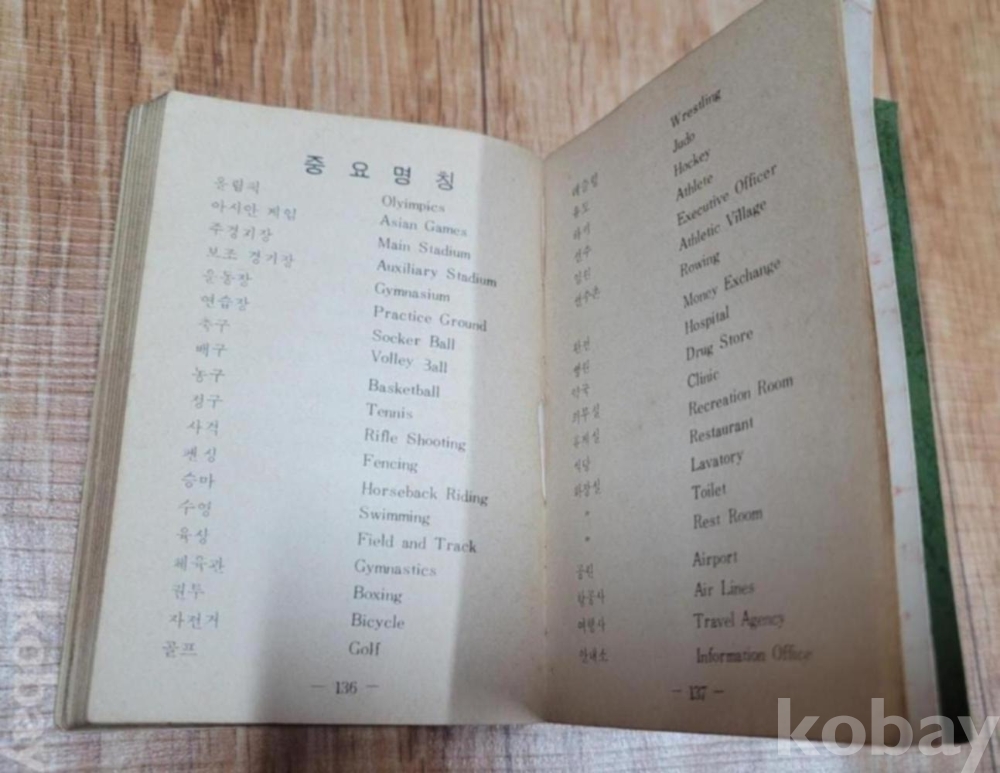 중요명칭
올림픽 Olyimpics
아시안 게임 Asian Games
주경기장 Main Stadium
보조 경기장 Auxiliary Stadium
운동장 Gymnasium
연습장 Practice Ground
축구 Socker Ball
배구 Volley Ball
농구 Basketball
정구 Tennis
사격 Rifle Shooting
펜싱 Fencing
승마 Horseback Riding
수영 Swimming
육상 Field and Track
체육관 Gymnastics
권투 Boxing
자전거 Bicycle
골프 Golf
— 136 —
레슬링 Wrestling
유도 Judo
하키 Hockey
선수 Athlete
임원 Executive Officer
선수촌 Athletic Village
Rowing
환전 Money Exchange
병원 Hospital
약국 Drug Store
의무실 Clinic
휴게실 Recreation Room
식당 Restaurant
화장실 Lavatory
〃 Toilet
〃 Rest Room
공항 Airport
항공사 Air Lines
여행사 Travel Agency
안내소 Information Office
— 137 —
kobay
kobay